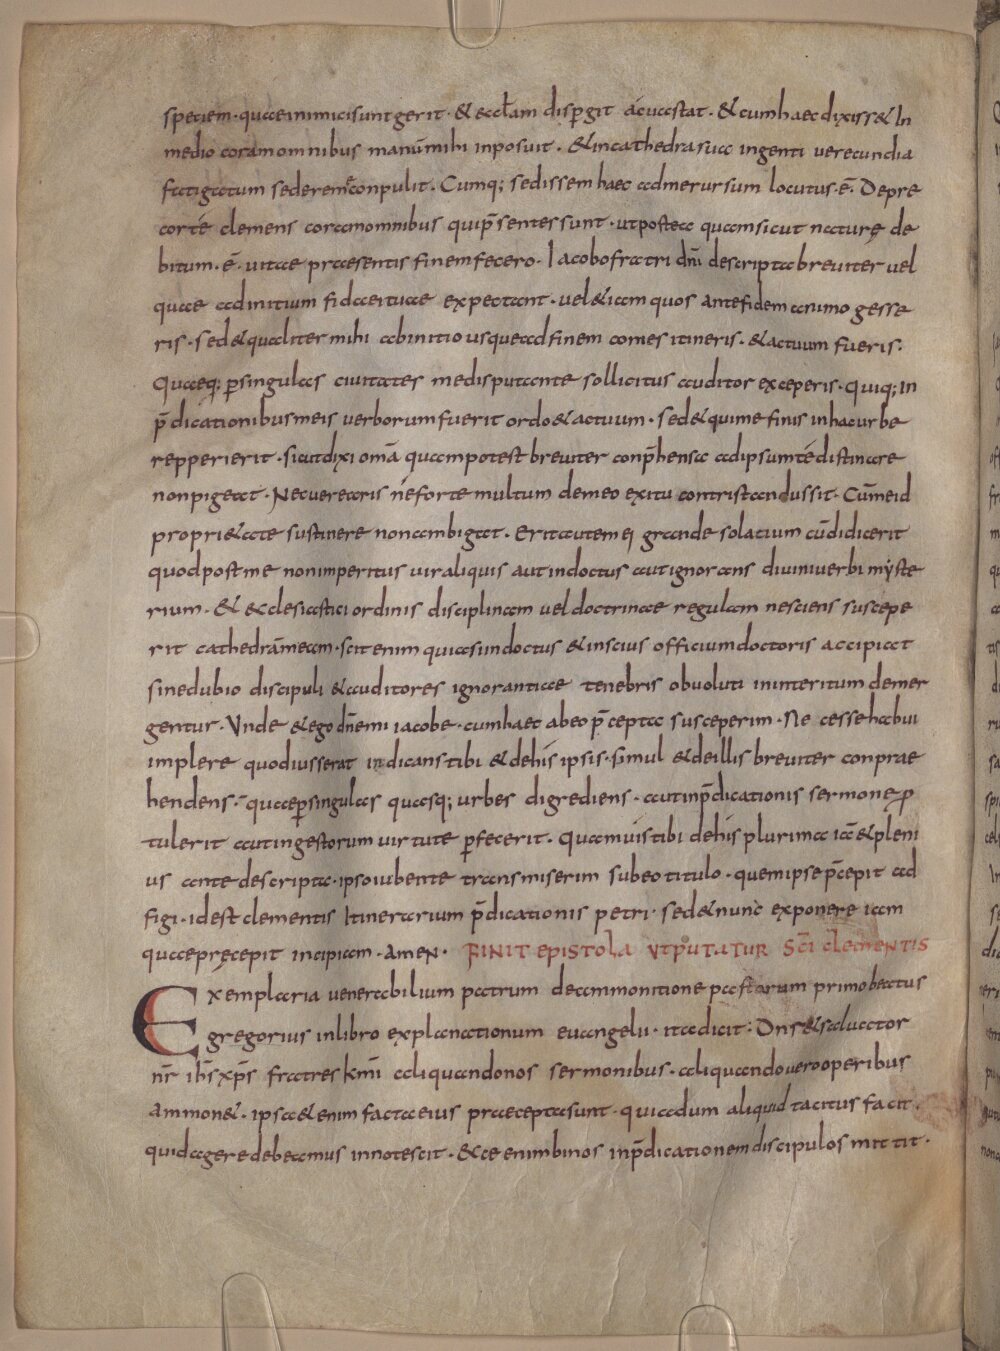 speciem · quae inimici sunt gerit · & eccłam disp̱git adcustat · & cum haec dixiss& In
medio coram omnibus manū mihi inposuit · & in cathedra sua ingenti verecundia
fatigatum sedere me conpulit · Cumq; sedissem haec ad me rursum locutus · ē · Depre
corte clemens coram omnibus qui p̄sentes sunt · ut postea quam sicut naturę de
bitum · ē · uitae praesentis finem fecero · Iacobo fratri dn̄i descripta breuiter uel
quae ad initium fidaei tuae expectant · uel & iam quos ante fidem animo gesse
ris · sed & qualiter mihi ab initio usque ad finem comes itineris · & actuum fueris ·
Quaeq; p̱singulas ciuitates me disputante sollicitus auditor exceperis · Quiq; In
p̄dicationibus meis uerborum fuerit ordo & actuum · sed & qui me finis in hac urbe
repperierit · sicut dixi omā quam potest breuiter conp̄hensa ad ipsum te distinare
non pigeat · Nec uerearis ne forte multum de meo exitu contristandus sit · Cūm eid
propri&ate sustinere non ambigat · Erit autem ei grande solacium cū didicerit
quod post me non imperitus uir aliquis aut indoctus aut ignorans diuini uerbi myste
rium · & ecclesiastici ordinis disciplinam uel doctrinae regulam nesciens suscepe
rit cathedrām eam · scit enim quia si indoctus & inscius officium doctoris accipiat
sine dubio discipuli & auditores ignorantiae tenebris obuoluti in interitum demer
gentur · Unde & ego dn̄e mi iacobe · cum haec ab eo p̄cepta susceperim · Ne cesse habui
implere quod iusserat indicans tibi & de his ipsis · simul & de illis breuiter conprae
hendens · quae p̱singulas quasq; urbes digrediens · aut in p̄dicationis sermone p̱
tulerit aut in gestorum uirtute p̱fecerit · Quamuis tibi de his plurima iā & pleni
us ante descripta · ipso iubente transmiserim sub eo titulo · quem ipse p̄cepit ad
figi · id est clementis Itinerarium p̄dicationis petri · sed & nunc exponere iam
quae pręcepit incipiam · AMEN · FINIT EPISTOLA UT PUTATUR SC̄I CLEMENTIS
Exemplaria uenerabilium patrum de ammonitione pastorum primo beatus
gregorius in libro explanationum euangelii · ita dicit · Dn̄s & saluator
nr̄ ih̄s xp̄s fratres km̄i aliquando nos sermonibus · aliquando uero operibus
ammon& · ipsa & enim facta eius praecepta sunt · quia dum aliquid tacitus facit ·
quid agere debeamus innotescit · & ce enim binos in p̄dicationem discipulos mittit ·